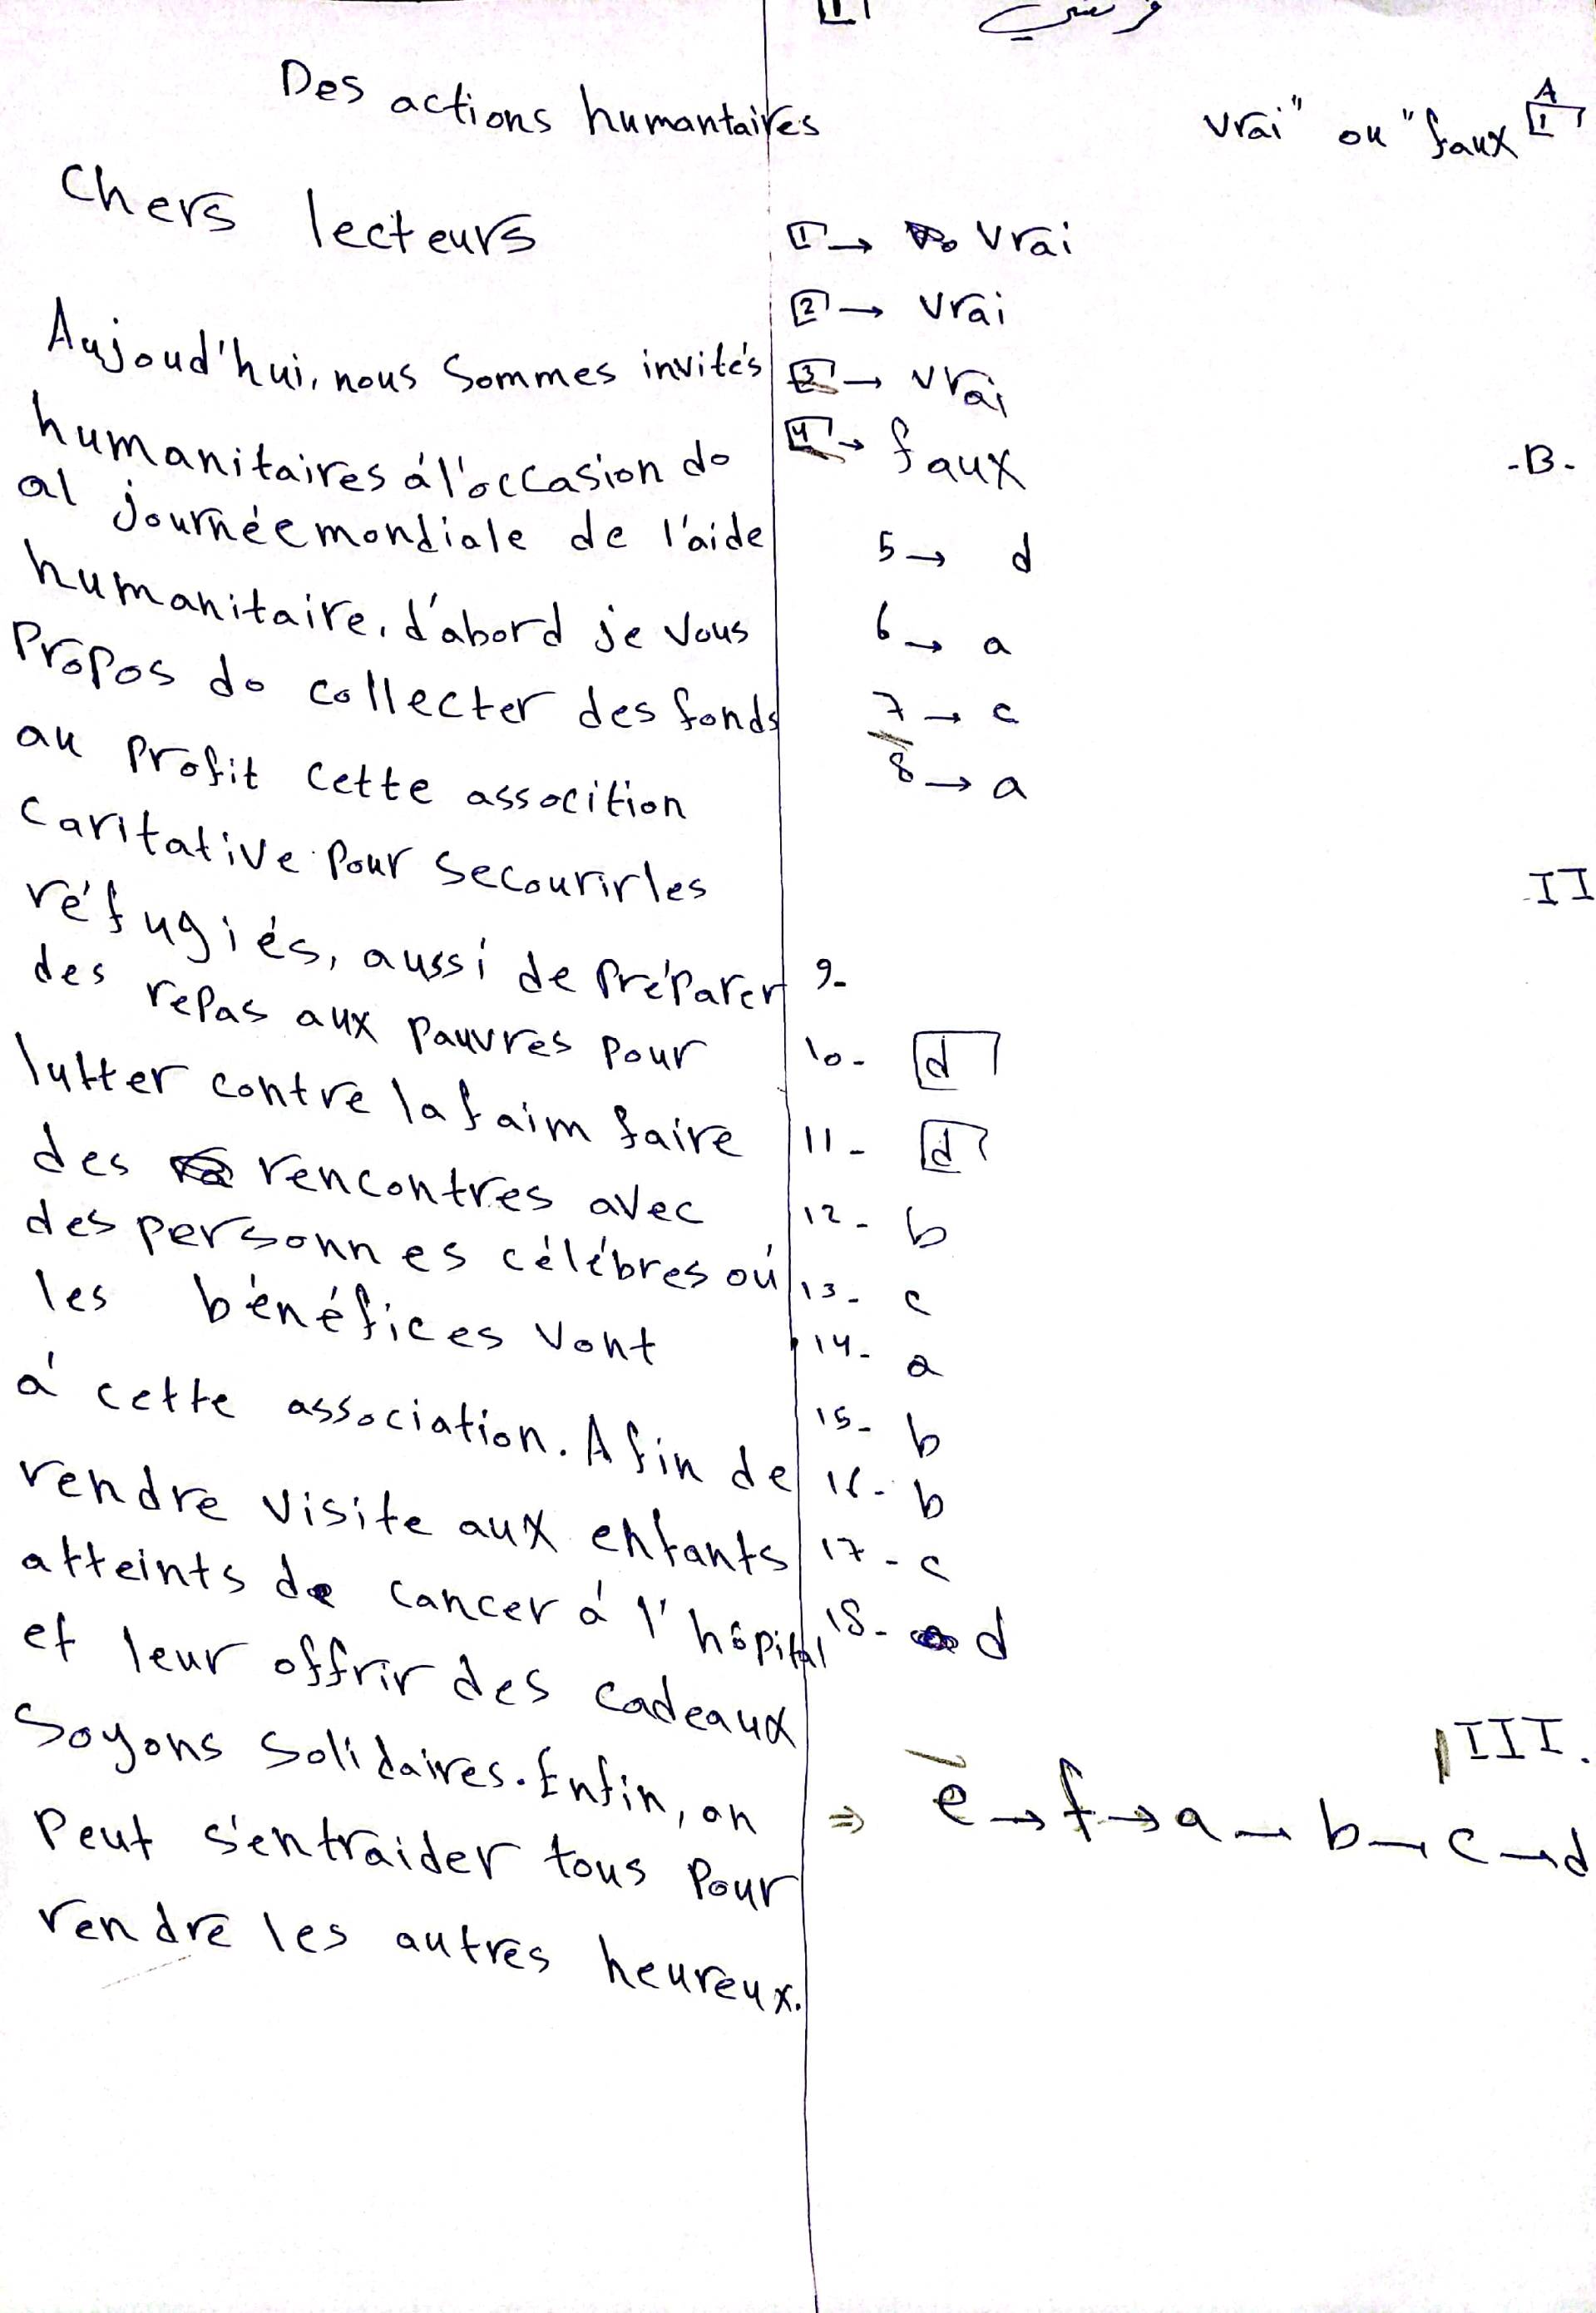 فرنسي
Des actions humantaires
Chers lecteurs
Aujoud'hui, nous sommes invités
humanitaires á l'occasion do
al journée mondiale de l'aide
humanitaire, d'abord je vous
Propos do collecter des fonds
au Profit cette assocition
caritative Pour secourir les
réfugiés, aussi de Préparer
des repas aux pauvres pour
lutter contre la faim faire
des rencontres avec
des personnes célébres oú
les bénéfices vont
á cette association. Afin de
rendre visite aux enfants
atteints de cancer á l'hôpital
et leur offrir des cadeaux
Soyons solidaires. Enfin, on
Peut s'entraider tous Pour
rendre les autres heureux.
vrai" ou "faux
A
1
1 → vrai
2 → vrai
3 → vrai
4 → faux
-B-
5 → d
6 → a
7 → c
8 → a
II
9-
10- d
11- d
12- b
13- c
14- a
15- b
16- b
17- c
18- d
III.
⇒ e → f → a → b → c → d